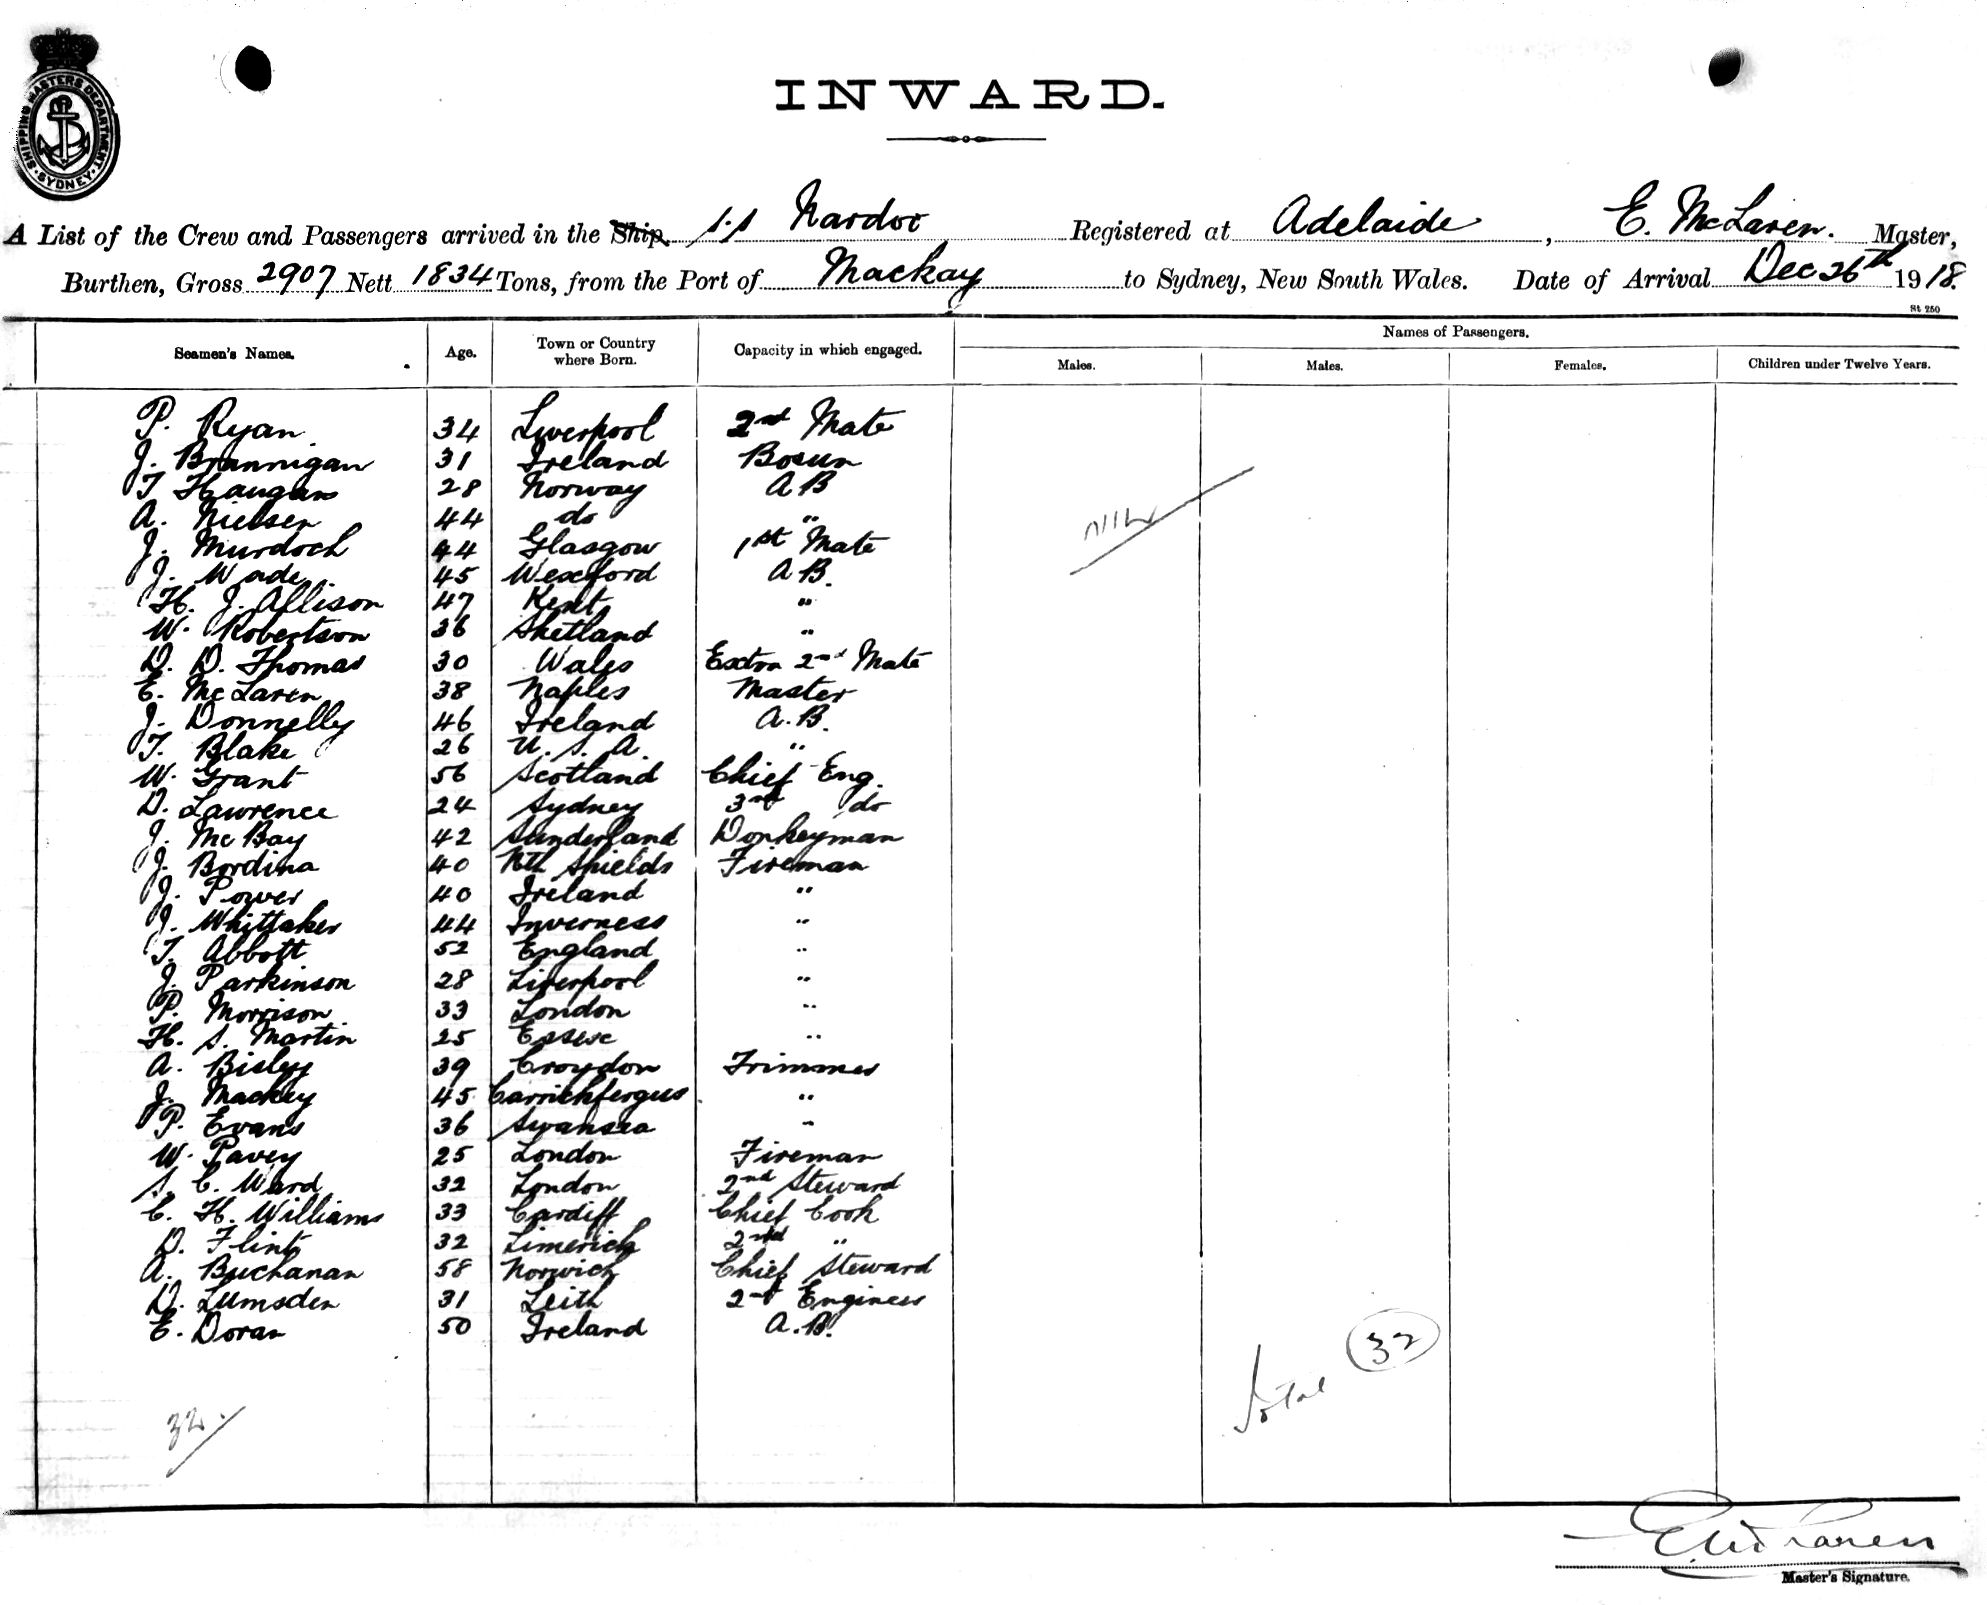 SHIPPING MASTERS DEPARTMENT. SYDNEY.
INWARD.
A List of the Crew and Passengers arrived in the Ship, s.s Nardoo Registered at Adelaide, E. McLaren. Master,
Burthen, Gross 2907 Nett 1834 Tons, from the Port of Mackay to Sydney, New South Wales. Date of Arrival Dec 26th 1918.
St 250
Seamen's Names. Age. Town or Country where Born. Capacity in which engaged. Names of Passengers.
Males. Males. Females. Children under Twelve Years.
P. Ryan 34 Liverpool 2nd Mate
J. Brannigan 31 Ireland Bosun
T Haugan 28 Norway A B
A. Nielsen 44 do "
J. Murdoch 44 Glasgow 1st Mate
J. Wade 45 Wexford A B.
H. J. Allison 47 Kent "
W. Robertson 36 Shetland "
D. D. Thomas 30 Wales Extra 2nd Mate
E. McLaren 38 Naples Master
J. Donnelly 46 Ireland A.B.
T. Blake 26 U.S.A. "
W. Grant 56 Scotland Chief Eng.
D. Lawrence 24 Sydney 3rd do
J. McBay 42 Sunderland Donkeyman
J. Bordina 40 Nth Shields Fireman
J. Power 40 Ireland "
J. Whittaker 44 Inverness "
T. Abbott 52 England "
J. Parkinson 28 Liverpool "
P. Morrison 33 London "
H. S. Martin 25 Essex "
A. Bisley 39 Croydon Trimmer
J. Mackey 45 Carrickfergus "
P. Evans 36 Swansea "
W. Pavey 25 London Fireman
S. C. Ward 32 London 2nd Steward
C. H. Williams 33 Cardiff Chief Cook
D. Flint 32 Limerick 2nd "
A. Buchanan 58 Norwich Chief Steward
D. Lumsden 31 Leith 2nd Engineer
E. Doran 50 Ireland A.B.
total 32
32.
E McLaren
Master's Signature.